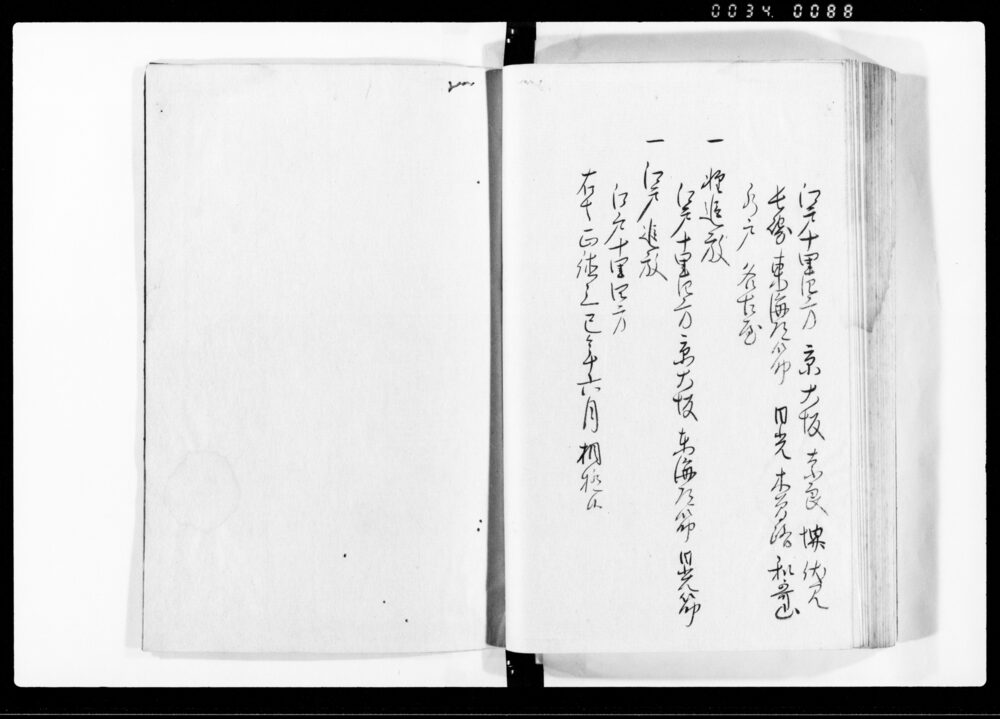 0034 0088
江戸十里四方 京 大坂 奈良 堺 伏見
長崎 東海道筋 日光 木曽路 和歌山
水戸 名古屋
一 軽追放
江戸十里四方 京 大坂 東海道筋 日光筋
一 江戸追放
江戸十里四方
右 正徳三巳年六月 相極